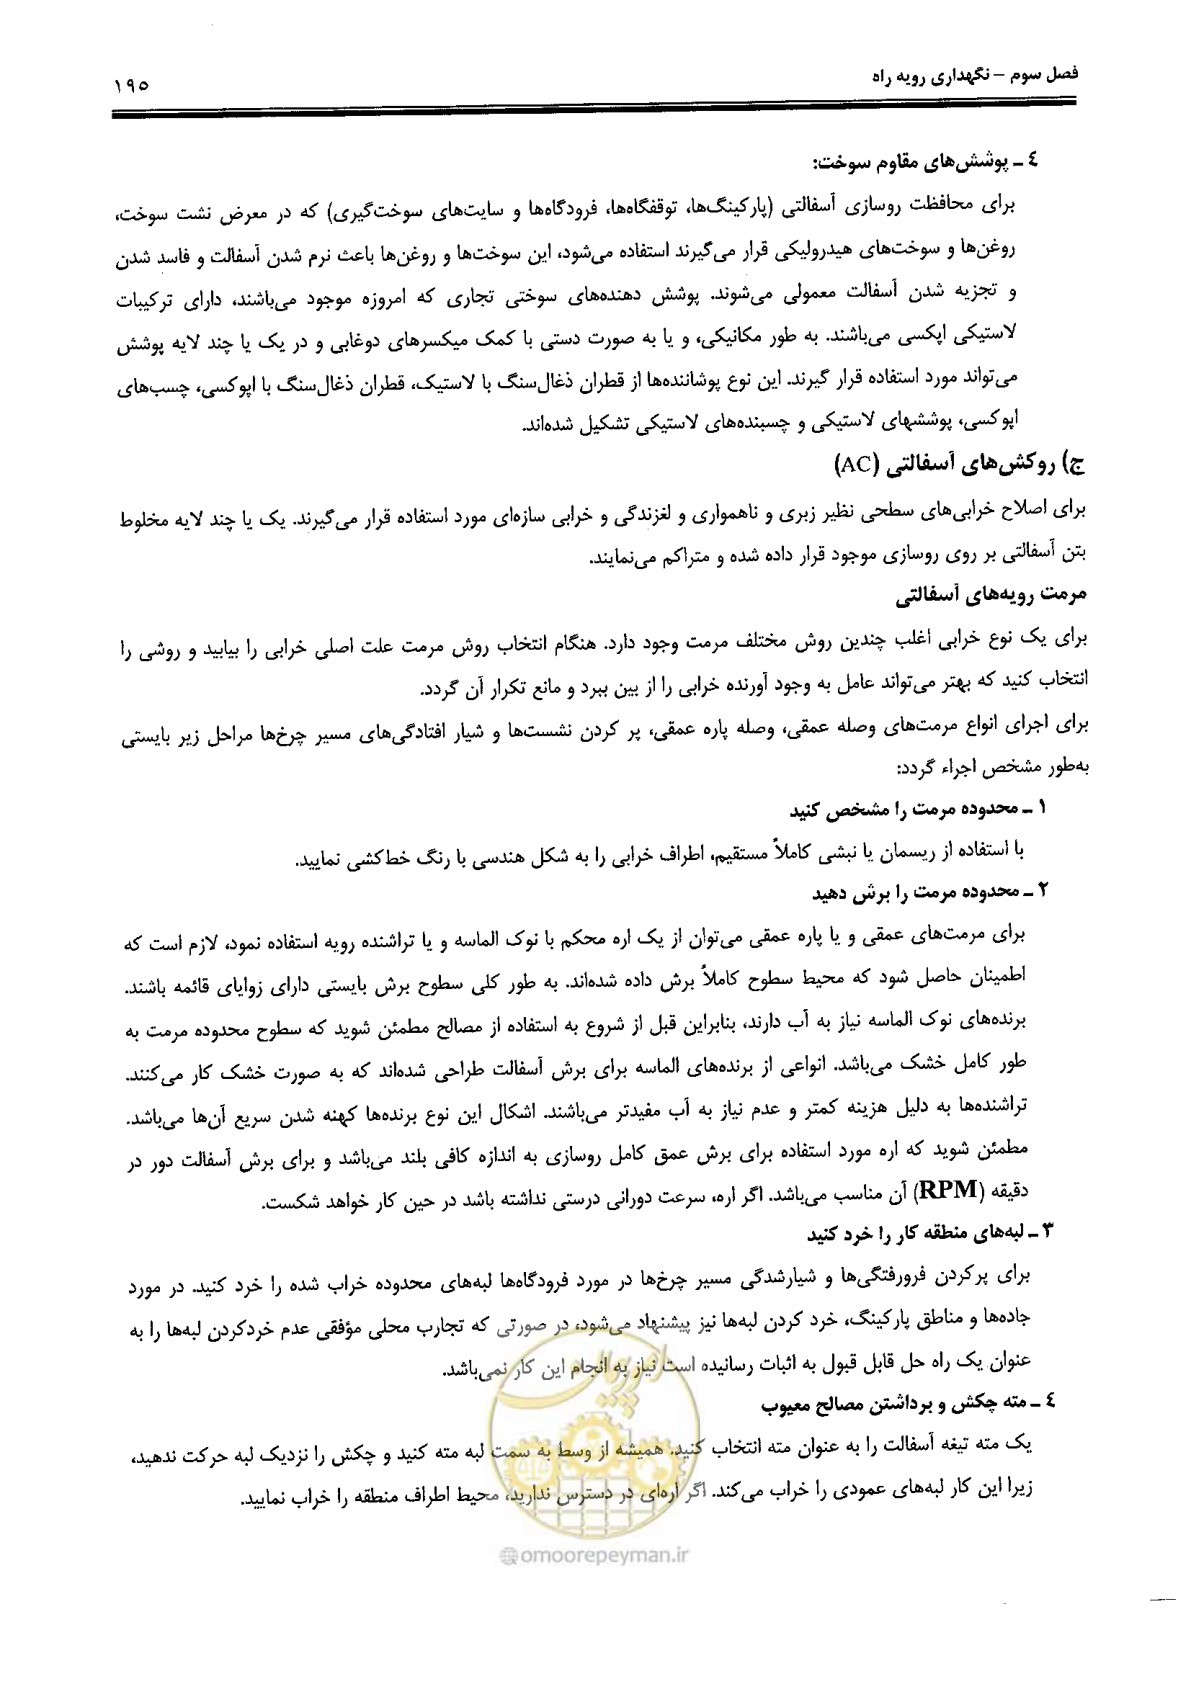 فصل سوم – نگهداری رویه راه
۱۹۵
٤ ـ پوشش‌های مقاوم سوخت:
برای محافظت روسازی آسفالتی (پارکینگ‌ها، توقفگاه‌ها، فرودگاه‌ها و سایت‌های سوخت‌گیری) که در معرض نشت سوخت،
روغن‌ها و سوخت‌های هیدرولیکی قرار می‌گیرند استفاده می‌شود، این سوخت‌ها و روغن‌ها باعث نرم شدن آسفالت و فاسد شدن
و تجزیه شدن آسفالت معمولی می‌شوند. پوشش دهنده‌های سوختی تجاری که امروزه موجود می‌باشند، دارای ترکیبات
لاستیکی اپکسی می‌باشند. به طور مکانیکی، و یا به صورت دستی با کمک میکسرهای دوغابی و در یک یا چند لایه پوشش
می‌تواند مورد استفاده قرار گیرند. این نوع پوشاننده‌ها از قطران ذغال‌سنگ با لاستیک، قطران ذغال‌سنگ با اپوکسی، چسب‌های
اپوکسی، پوششهای لاستیکی و چسبنده‌های لاستیکی تشکیل شده‌اند.
ج) روکش‌های آسفالتی (AC)
برای اصلاح خرابی‌های سطحی نظیر زبری و ناهمواری و لغزندگی و خرابی سازه‌ای مورد استفاده قرار می‌گیرند. یک یا چند لایه مخلوط
بتن آسفالتی بر روی روسازی موجود قرار داده شده و متراکم می‌نمایند.
مرمت رویه‌های آسفالتی
برای یک نوع خرابی اغلب چندین روش مختلف مرمت وجود دارد. هنگام انتخاب روش مرمت علت اصلی خرابی را بیابید و روشی را
انتخاب کنید که بهتر می‌تواند عامل به وجود آورنده خرابی را از بین ببرد و مانع تکرار آن گردد.
برای اجرای انواع مرمت‌های وصله عمقی، وصله پاره عمقی، پر کردن نشست‌ها و شیار افتادگی‌های مسیر چرخ‌ها مراحل زیر بایستی
به‌طور مشخص اجراء گردد:
۱ ـ محدوده مرمت را مشخص کنید
با استفاده از ریسمان یا نبشی کاملاً مستقیم، اطراف خرابی را به شکل هندسی با رنگ خط‌کشی نمایید.
۲ ـ محدوده مرمت را برش دهید
برای مرمت‌های عمقی و یا پاره عمقی می‌توان از یک اره محکم با نوک الماسه و یا تراشنده رویه استفاده نمود، لازم است که
اطمینان حاصل شود که محیط سطوح کاملاً برش داده شده‌اند. به طور کلی سطوح برش بایستی دارای زوایای قائمه باشند.
برنده‌های نوک الماسه نیاز به آب دارند، بنابراین قبل از شروع به استفاده از مصالح مطمئن شوید که سطوح محدوده مرمت به
طور کامل خشک می‌باشد. انواعی از برنده‌های الماسه برای برش آسفالت طراحی شده‌اند که به صورت خشک کار می‌کنند.
تراشنده‌ها به دلیل هزینه کمتر و عدم نیاز به آب مفیدتر می‌باشند. اشکال این نوع برنده‌ها کهنه شدن سریع آن‌ها می‌باشد.
مطمئن شوید که اره مورد استفاده برای برش عمق کامل روسازی به اندازه کافی بلند می‌باشد و برای برش آسفالت دور در
دقیقه (RPM) آن مناسب می‌باشد. اگر اره، سرعت دورانی درستی نداشته باشد در حین کار خواهد شکست.
۳ ـ لبه‌های منطقه کار را خرد کنید
برای پرکردن فرورفتگی‌ها و شیارشدگی مسیر چرخ‌ها در مورد فرودگاه‌ها لبه‌های محدوده خراب شده را خرد کنید. در مورد
جاده‌ها و مناطق پارکینگ، خرد کردن لبه‌ها نیز پیشنهاد می‌شود، در صورتی که تجارب محلی مؤفقی عدم خردکردن لبه‌ها را به
عنوان یک راه حل قابل قبول به اثبات رسانیده است نیاز به انجام این کار نمی‌باشد.
٤ ـ مته چکش و برداشتن مصالح معیوب
یک مته تیغه آسفالت را به عنوان مته انتخاب کنید. همیشه از وسط به سمت لبه مته کنید و چکش را نزدیک لبه حرکت ندهید،
زیرا این کار لبه‌های عمودی را خراب می‌کند. اگر اره‌ای در دسترس ندارید، محیط اطراف منطقه را خراب نمایید.
امور پیمان
@omoorepeyman.ir